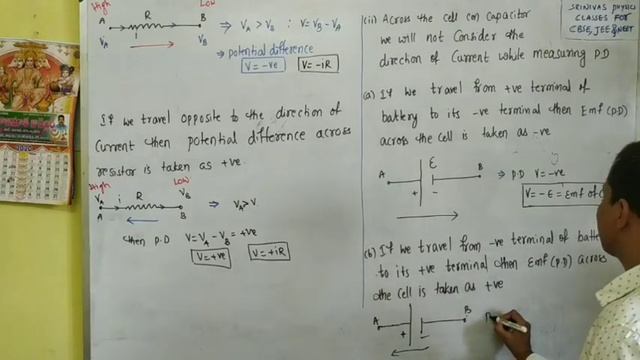 High
Low
R
A
B
i
V_A
V_B
⇒ V_A > V_B : V = V_B - V_A
⇒ potential difference
V = -ve
V = -iR
If we travel opposite to the direction of
Current then potential difference across
resistor is taken as +ve.
High
Low
V_A
i
R
V_B
A
B
⇒ V_A > V
then P.D V = V_A - V_B = +ve
V = +ve
V = +iR
(ii) Across the cell (or) Capacitor
we will not Consider the
direction of Current while measuring P.D
SRINIVAS PHYSICS
CLASSES FOR
CBSE, JEE & NEET
(a) If we travel from +ve terminal of
battery to its -ve terminal then Emf (P.D)
across the cell is taken as -ve
A
E
B
+
-
⇒ P.D V = -ve
V = -E = Emf of
(b) If we travel from -ve terminal of
to its +ve terminal then Emf (P.D) across
the cell is taken as +ve
A
B
+
-